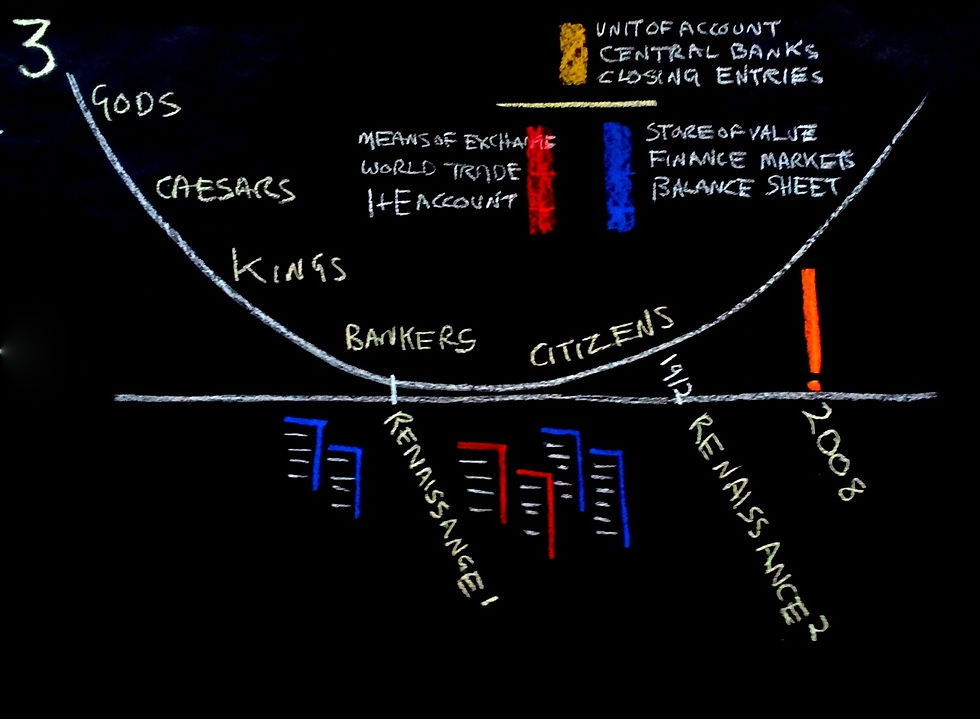 3
UNIT OF ACCOUNT
CENTRAL BANKS
CLOSING ENTRIES
MEANS OF EXCHANGE
WORLD TRADE
I+E ACCOUNT
STORE OF VALUE
FINANCE MARKETS
BALANCE SHEET
GODS
CAESARS
KINGS
BANKERS
CITIZENS
1912
RENAISSANCE 1
RENAISSANCE 2
2008